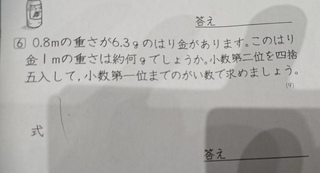 答え
⑥ 0.8mの重さが6.3gのはり金があります。このはり
金1mの重さは約何gでしょうか。小数第二位を四捨
五入して，小数第一位までのがい数で求めましょう。
式
答え